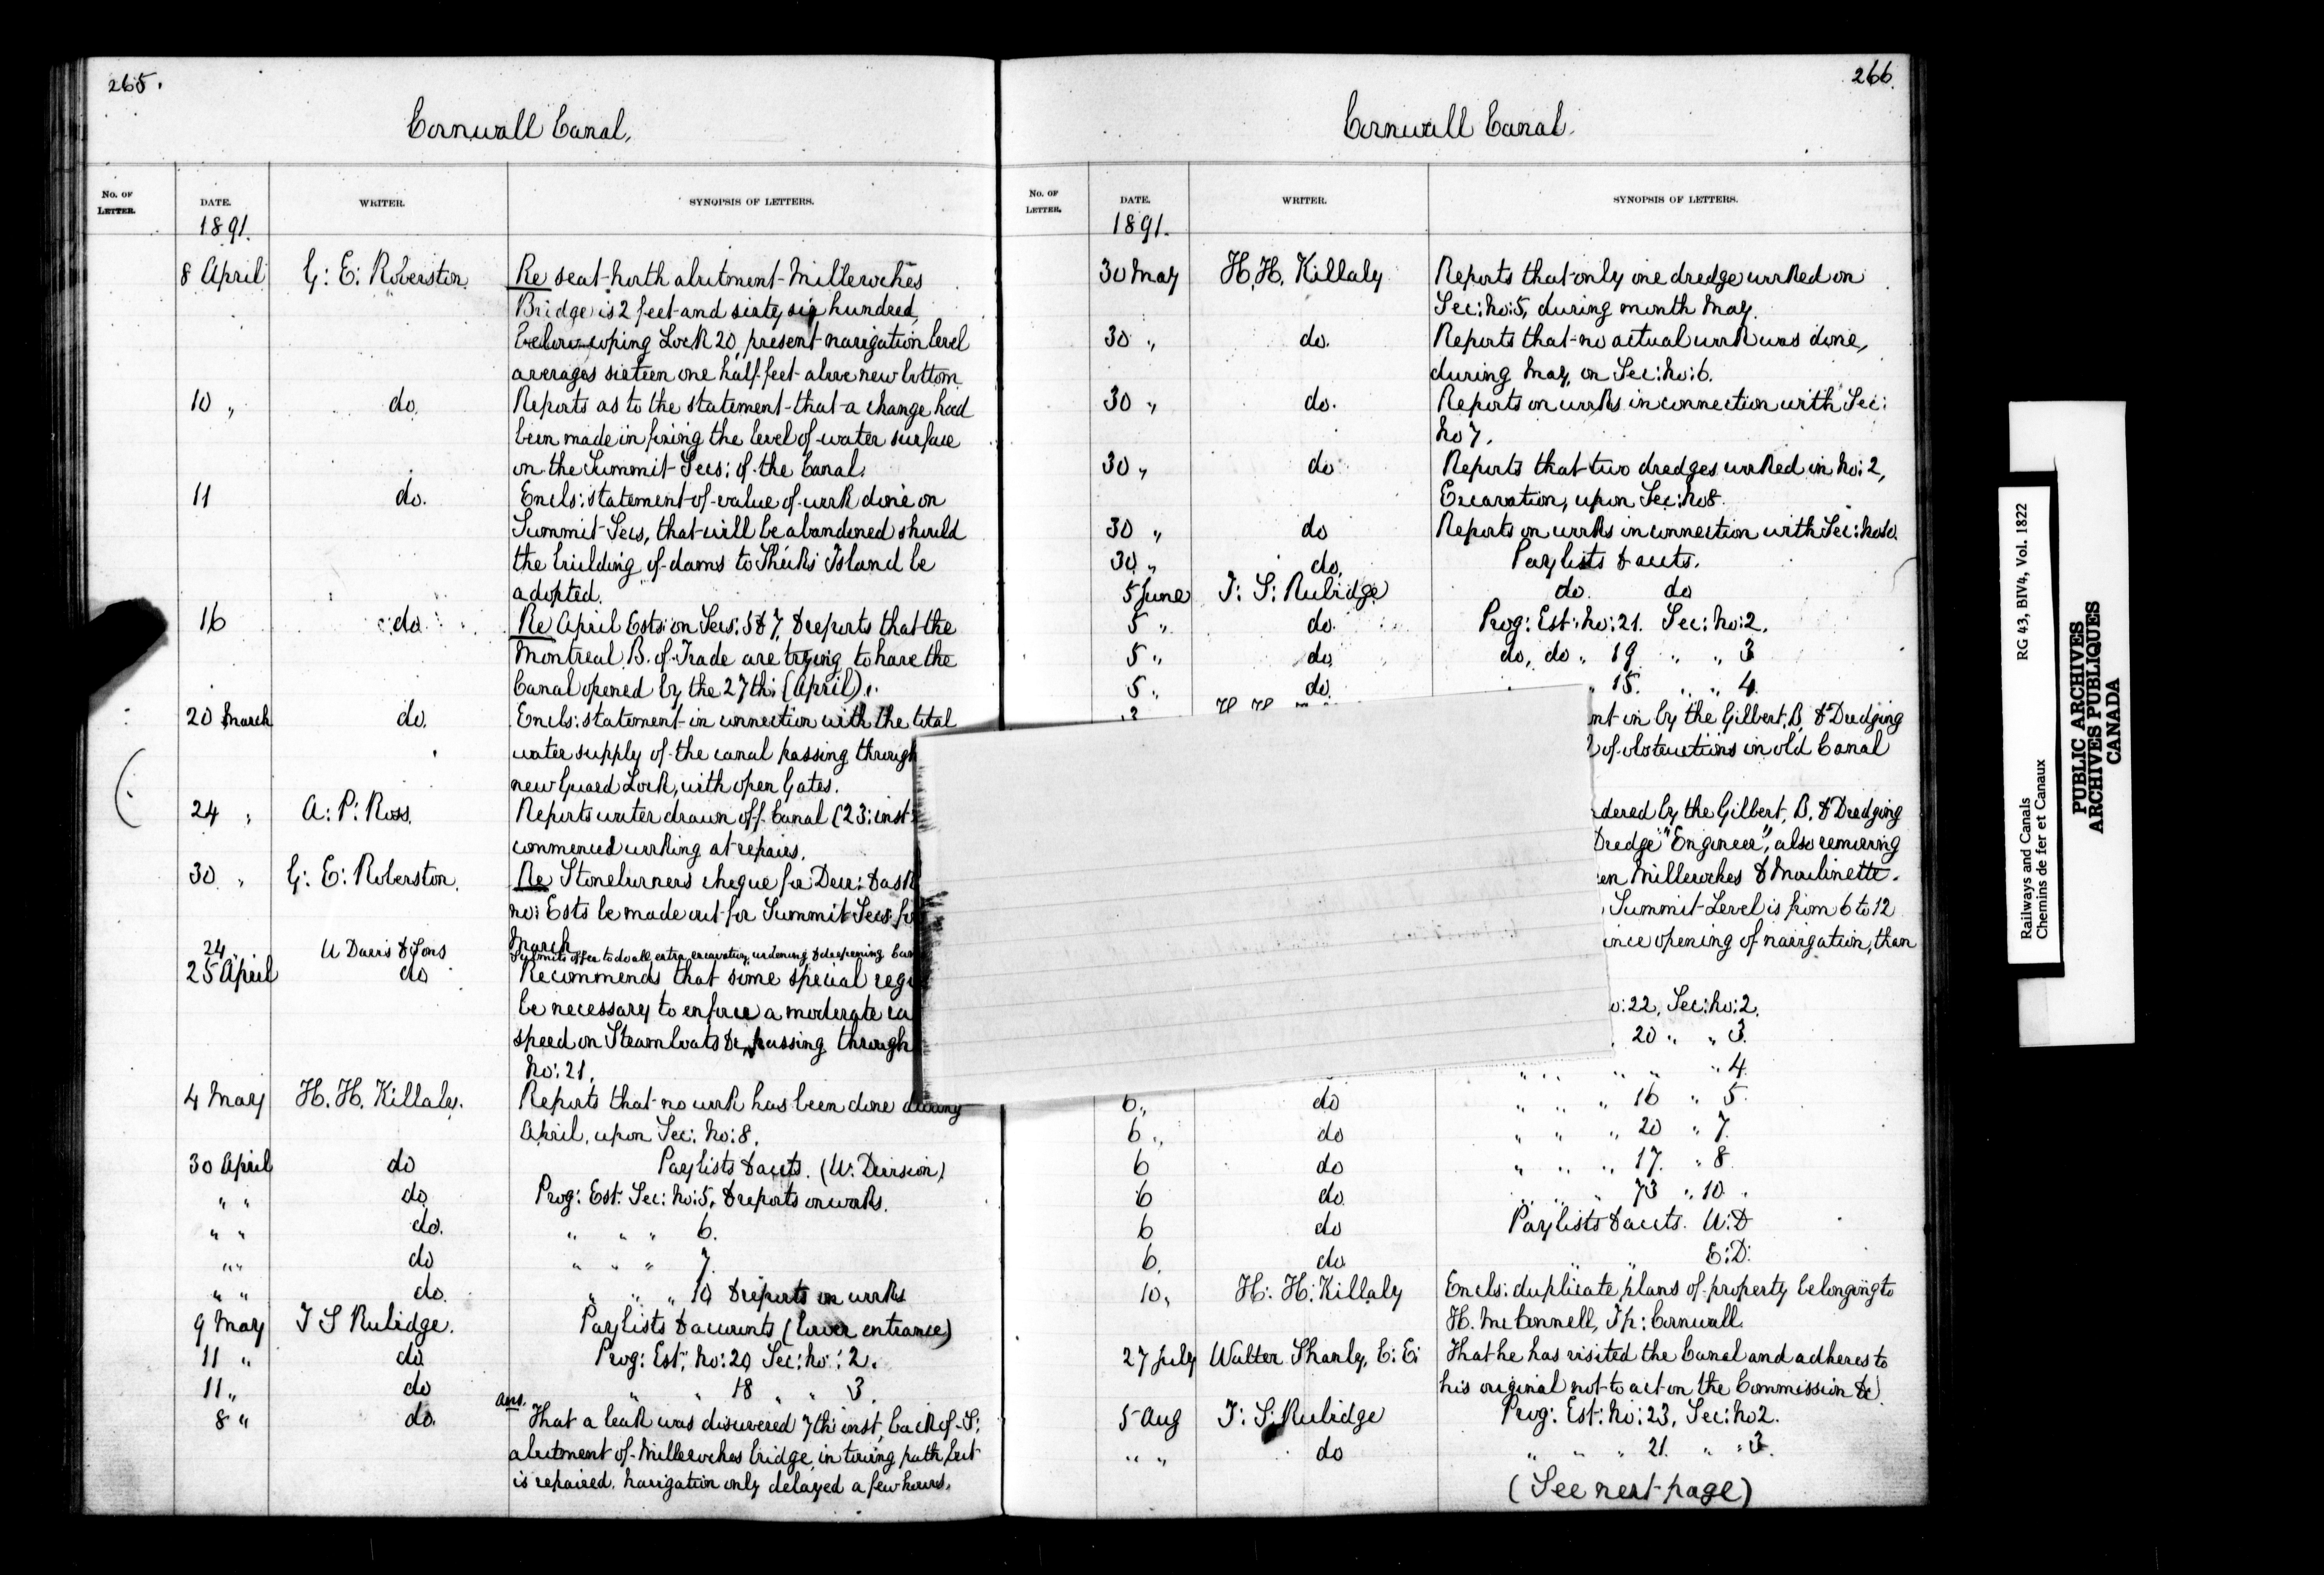 265.
Cornwall Canal.
No. OF LETTER.
DATE.
WRITER.
SYNOPSIS OF LETTERS.
1891.
8 April G: E: Roberston Re seat north abutment Milleroches
Bridge is 2 feet and sixty six hundred,
below coping Lock 20, present navigation level
averages sixteen one half feet above new bottom
10 " do. Reports as to the statement that a change had
been made in fixing the level of water surface
on the Summit Secs: of the Canal.
11 do. Encls: statement of value of work done on
Summit Secs, that will be abandoned should
the building of dams to Sheiks Island be
adopted.
16 do. Re April Ests: on Secs: 5 & 7, & reports that the
Montreal B. of Trade are trying to have the
Canal opened by the 27th: (April).
20 March do. Encls: statement in connection with the total
water supply of the canal passing through
new Guard Lock, with open Gates.
24 " A: P: Ross. Reports water drawn off Canal (23: inst
commenced working at repairs.
30 " G: E: Roberston. Re Stoneburners cheque for Decr: & ask
no: Ests be made out for Summit Secs: for
March
24 W Davis & Sons Submits offer to do all extra excavation, widening & deepening
25 April do Recommends that some special reg
be necessary to enforce a moderate
speed on Steamboats &c, passing through
No: 21.
4 May H. H. Killaly. Reports that no work has been done during
April, upon Sec: No: 8.
30 April do Paylists & accts. (W: Division)
" " do Prog: Est: Sec: No: 5, & reports on works.
" " do. " " " 6.
" " do " " " 7.
" " do. " " " 10, & reports on works
9 May T S Rubidge. Paylists & accounts (lower entrance)
11 " do. Prog: Est: No: 20, Sec: No: 2.
11 " do " " 18 " " 3.
8 " do. ans. That a leak was discovered 7th inst, back of S:
abutment of Milleroches bridge, in towing path, but
is repaired. navigation only delayed a few hours.
266.
Cornwall Canal.
No. OF LETTER.
DATE.
WRITER.
SYNOPSIS OF LETTERS.
1891.
30 May H. H. Killaly Reports that only one dredge worked on
Sec: No: 5, during month May.
30 " do. Reports that no actual work was done,
during May, on Sec: No: 6.
30 " do. Reports on works in connection with Sec:
No 7.
30 " do Reports that two dredges worked in No: 2,
Excavation, upon Sec: No 8.
30 " do Reports on works in connection with Sec: No 10.
30 " do. Paylists & accts.
5 June T: S: Rubidge do. do
5 " do. Prog: Est: No: 21. Sec: No: 2.
5 " do. do, do " 19 " " 3
5 " do. 15. " " 4.
nt in by the Gilbert, B. & Dredging
of obstructions in old Canal
dered by the Gilbert, B. & Dredging
Dredge "Engineer", also removing
en Milleroches & Moulinette.
Summit Level is from 6 to 12
ince opening of navigation, than
o: 22, Sec: No: 2.
20 " " 3.
" " " " " 4.
6 " do " " " 16 " 5.
6 " do " " " 20 " 7.
6 do " " " 17. " 8.
6 do. " " " 73 " 10.
6 do Paylists & accts. W: D
6. do. " " E: D:
10 " H: H: Killaly Encls: duplicate plans of property belonging to
H. McConnell, Tp: Cornwall.
27 July Walter Shanly, C: E: That he has visited the Canal and adheres to
his original not to act on the Commission &c
5 Aug T: S: Rubidge Prog: Est: No: 23, Sec: No 2.
" " do " " " 21. " " 3.
(See next page)
Railways and Canals RG 43, BIV4, Vol. 1822
Chemins de fer et Canaux
PUBLIC ARCHIVES
ARCHIVES PUBLIQUES
CANADA